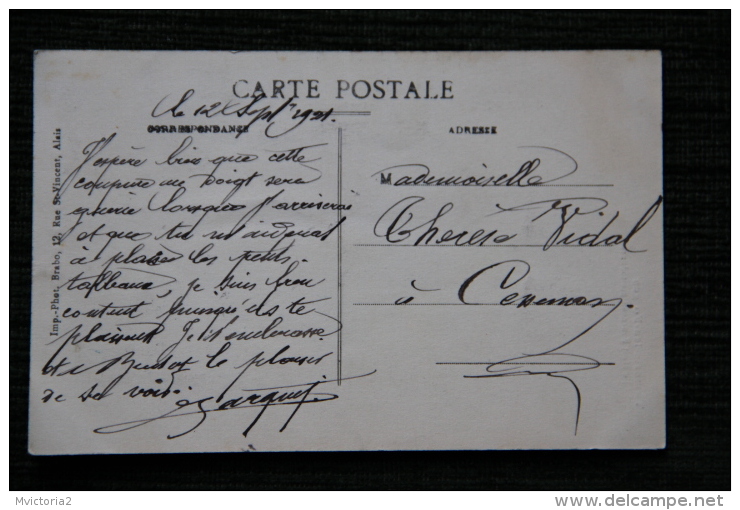 CARTE POSTALE
le 12 Sept 1921.
CORRESPONDANCE
J'espère bien que cette
coupure au doigt sera
guérie lorsque j'arriverai
et que tu m'aideras
à placer les petits
tableaux, je suis bien
content puisqu'ils te
plaisent Je t'embrasse
et à le plaisir
de se voir.
ADRESSE
Mademoiselle
Thérèse Vidal
à
Imp.-Phot. Brabo, 12, Rue St-Vincent, Alais
Mvictoria2
delcampe.net